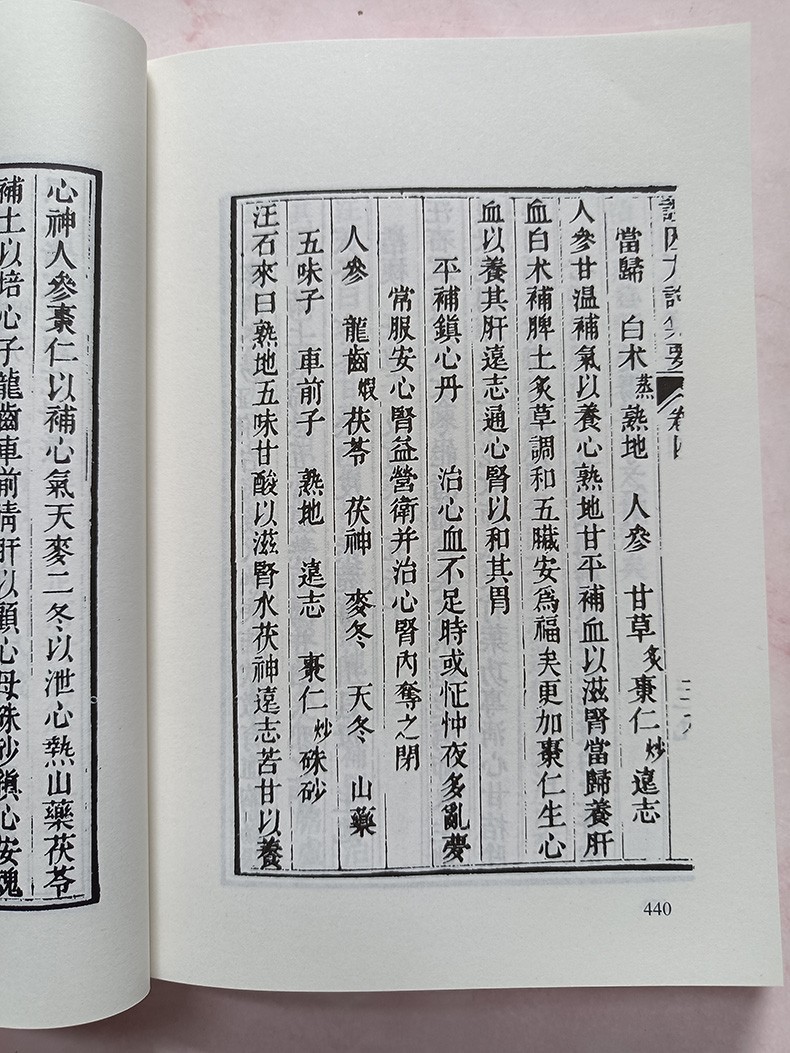 證因方論集要 卷四
當歸 白术蒸 熟地 人參 甘草炙 棗仁炒 遠志
人參甘温補氣以養心熟地甘平補血以滋腎當歸養肝
血白术補脾土炙草調和五臟安爲福矣更加棗仁生心
血以養其肝遠志通心腎以和其胃
平補鎮心丹 治心血不足時或怔忡夜多亂夢
常服安心腎益營衛并治心腎內奪之閉
人參 龍齒煆 茯苓 茯神 麥冬 天冬 山藥
五味子 車前子 熟地 遠志 棗仁炒 硃砂
汪石來曰熟地五味甘酸以滋腎水茯神遠志苦甘以養
440
心神人參棗仁以補心氣天麥二冬以泄心熱山藥茯苓
補土以培心子龍齒車前清肝以顧心母硃砂鎮心安魂